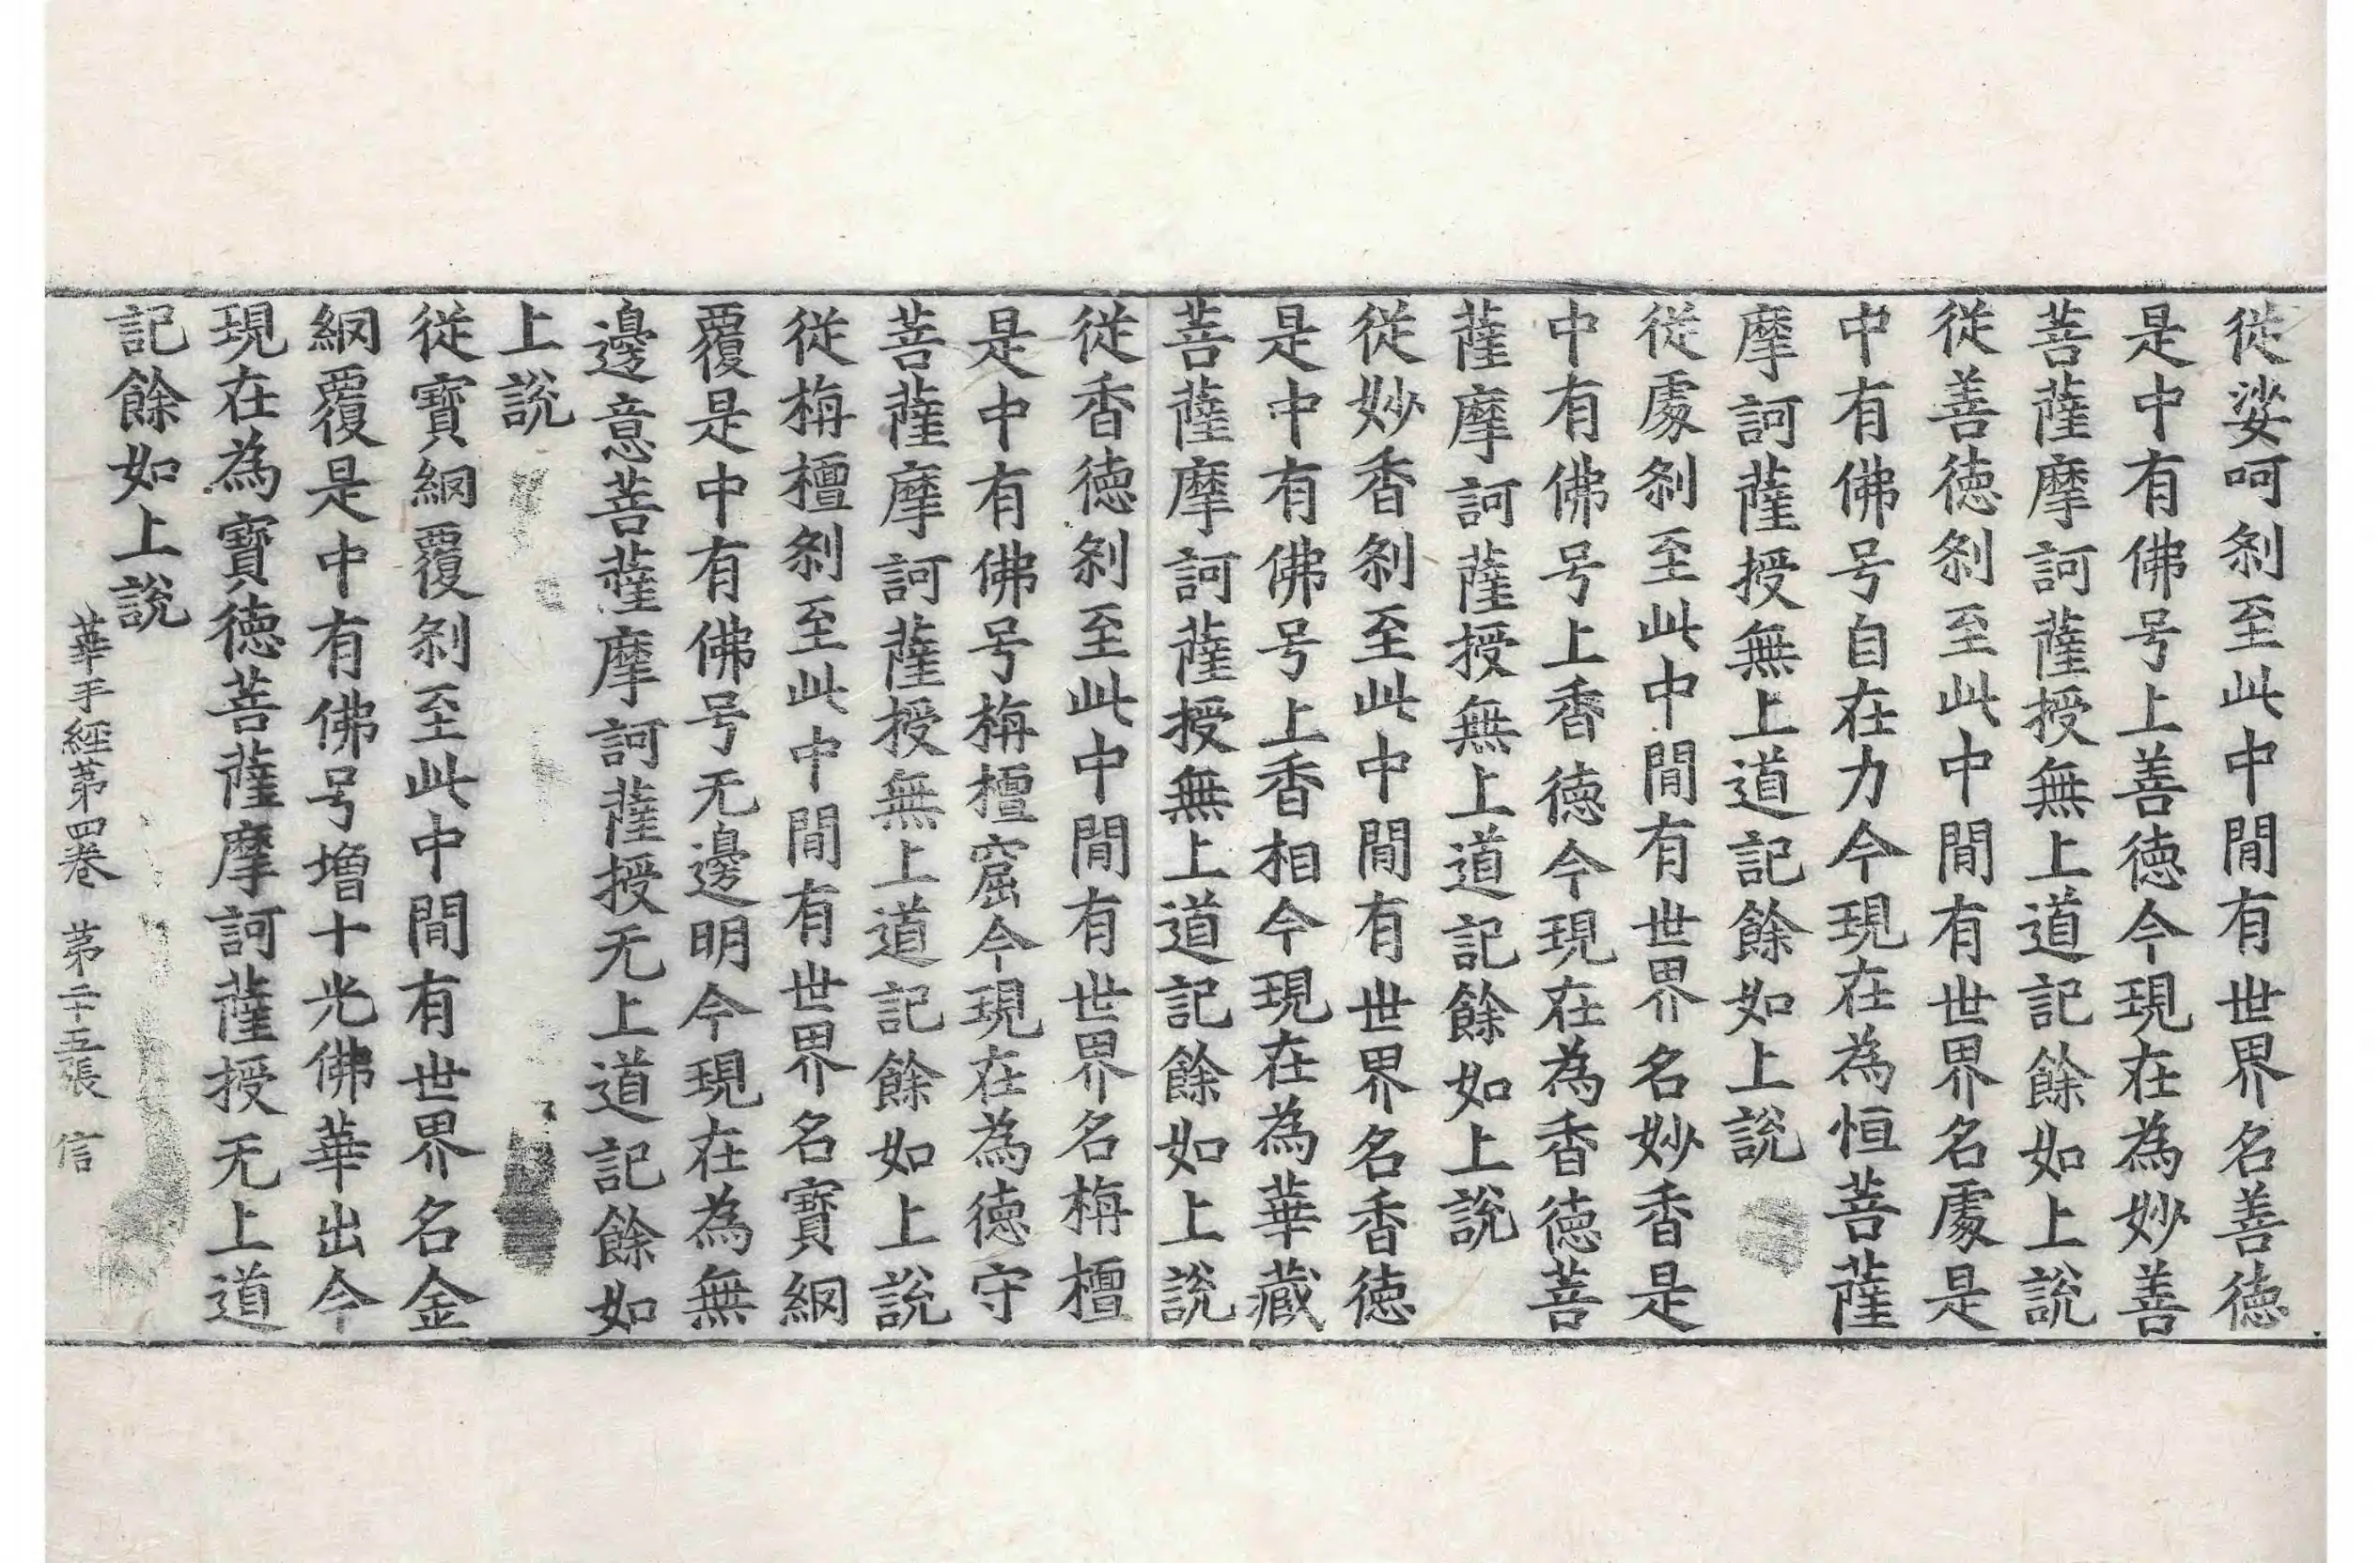 従娑呵刹至此中閒有世界名善徳
是中有佛号上善徳今現在為妙善
菩薩摩訶薩授無上道記餘如上說
従善徳刹至此中閒有世界名䖏是
中有佛号自在力今現在為恒菩薩
摩訶薩授無上道記餘如上說
従䖏刹至此中閒有世界名妙香是
中有佛号上香徳今現在為香徳菩
薩摩訶薩授無上道記餘如上說
従妙香刹至此中閒有世界名香徳
是中有佛号上香相今現在為華藏
菩薩摩訶薩授無上道記餘如上說
従香徳刹至此中閒有世界名栴檀
是中有佛号栴檀窟今現在為徳守
菩薩摩訶薩授無上道記餘如上說
従栴檀刹至此中閒有世界名寶網
覆是中有佛号无邊明今現在為無
邊意菩薩摩訶薩授无上道記餘如
上說
従寶網覆刹至此中閒有世界名金
網覆是中有佛号增十光佛華出今
現在為寶徳菩薩摩訶薩授无上道
記餘如上說
華手經苐四卷 苐二十五張 信